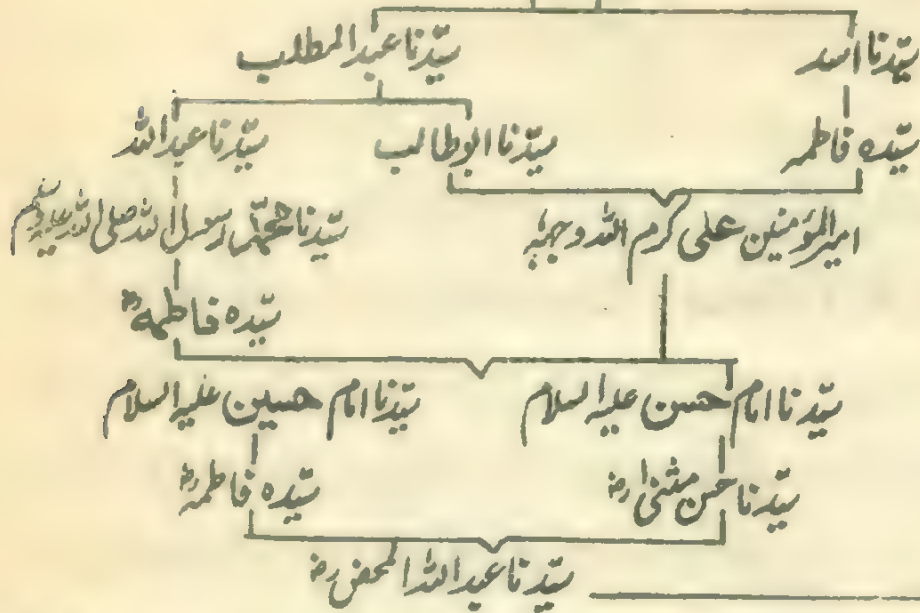 سیّدنا اسد سیّدنا عبدالمطلب
سیّدہ فاطمہ سیّدنا ابوطالب سیّدنا عبداللہ
امیرالمؤمنین علی کرم اللہ وجہہٗ سیّدنا محمّد رسول اللہ صلی اللہ علیہ وسلم
سیّدہ فاطمہؓ
سیّدنا امام حسن علیہ السلام سیّدنا امام حسین علیہ السلام
سیّدنا حسن مثنیٰ رضؓ سیّدہ فاطمہؓ
سیّدنا عبداللہ المحضؓ